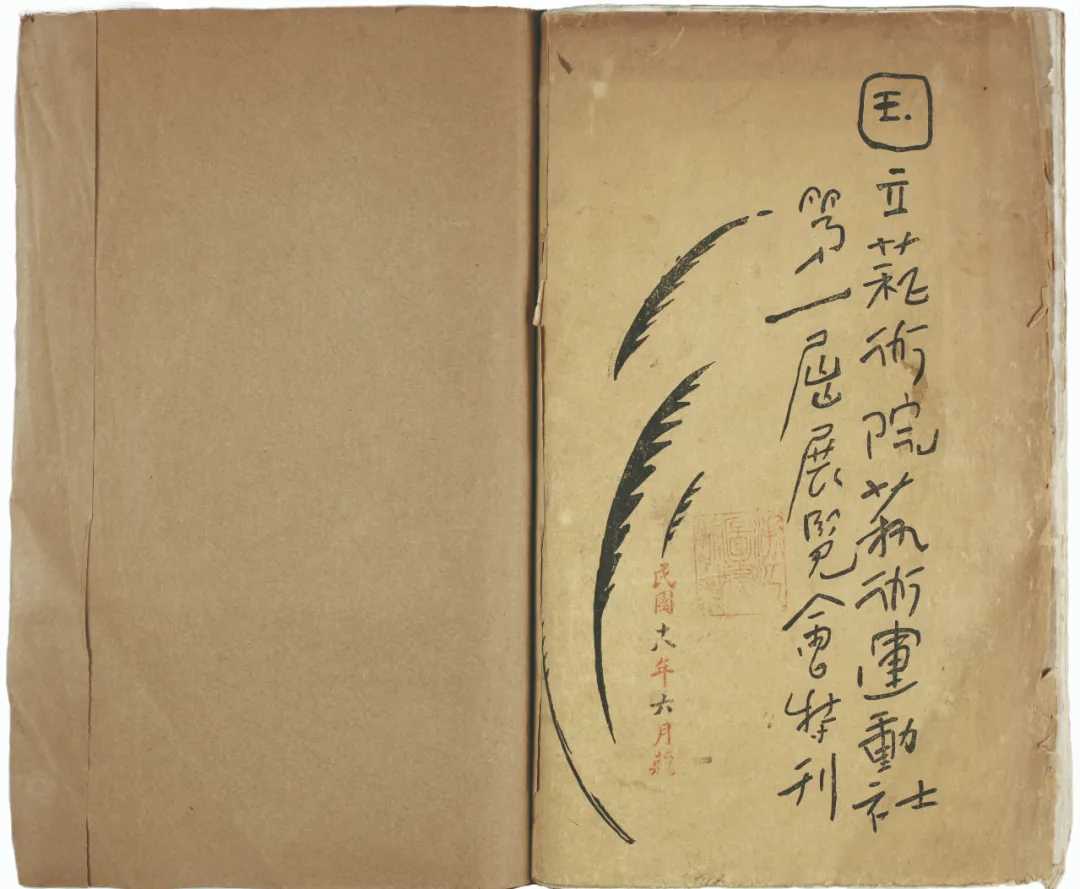 国立藝術院藝術運動社
第一屆展覽會特刊
民國十八年六月